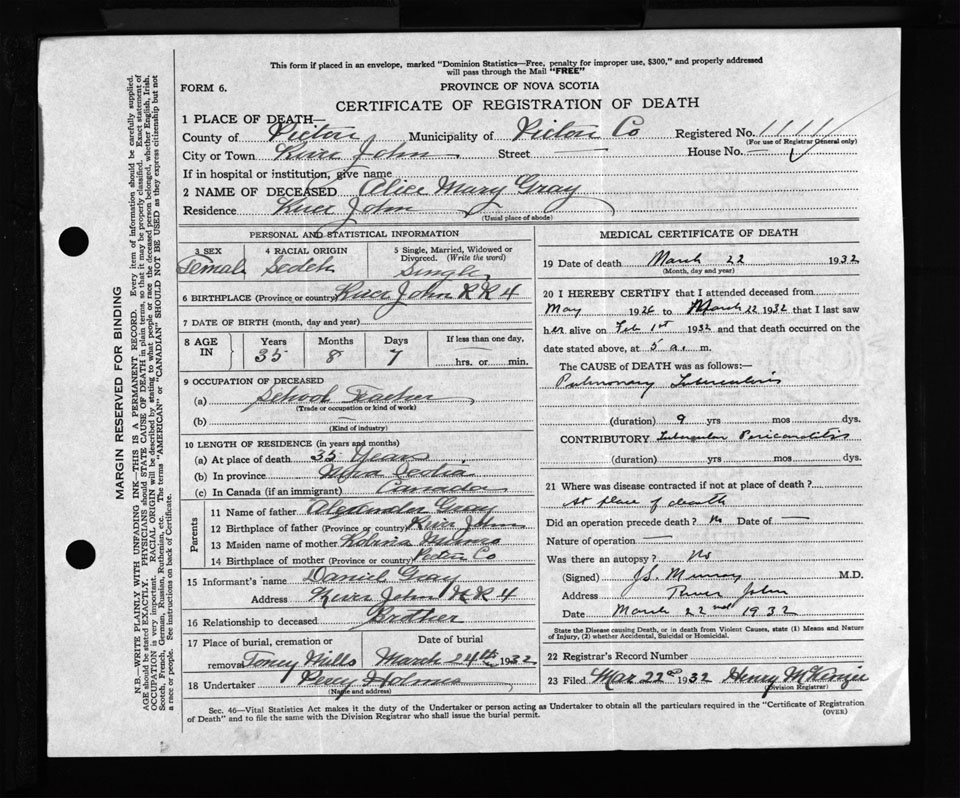 This form if placed in an envelope, marked "Dominion Statistics—Free, penalty for improper use, $300," and properly addressed
will pass through the Mail "FREE"
FORM 6.
PROVINCE OF NOVA SCOTIA
CERTIFICATE OF REGISTRATION OF DEATH
1 PLACE OF DEATH—
County of Pictou Municipality of Pictou Co Registered No. 11111
(For use of Registrar General only)
City or Town River John Street — House No. —
If in hospital or institution, give name
2 NAME OF DECEASED Alice Mary Gray
Residence River John
(Usual place of abode)
PERSONAL AND STATISTICAL INFORMATION
3 SEX 4 RACIAL ORIGIN 5 Single, Married, Widowed or
Divorced. (Write the word)
Female Scotch Single
6 BIRTHPLACE (Province or country) River John R R 4
7 DATE OF BIRTH (month, day and year)
8 AGE IN Years Months Days If less than one day,
35 8 7 hrs. or min.
9 OCCUPATION OF DECEASED
(a) School Teacher
(Trade or occupation or kind of work)
(b) —
(Kind of industry)
10 LENGTH OF RESIDENCE (in years and months)
(a) At place of death 35 Years
(b) In province Nova Scotia
(c) In Canada (if an immigrant) Canada
Parents
11 Name of father Alexander Gray
12 Birthplace of father (Province or country) River John
13 Maiden name of mother
14 Birthplace of mother (Province or country) Pictou Co
15 Informant's name Daniel Gray
Address River John R R 4
16 Relationship to deceased Brother
17 Place of burial, cremation or Date of burial
removal Toney Mills March 24th 1932
18 Undertaker Percy Holmes
(Name and address)
MEDICAL CERTIFICATE OF DEATH
19 Date of death March 22 1932
(Month, day and year)
20 I HEREBY CERTIFY that I attended deceased from
May 1926 to March 22 1932 that I last saw
her alive on Feb 1st 1932 and that death occurred on the
date stated above, at 5 a. m.
The CAUSE OF DEATH was as follows:—
Pulmonary Tuberculosis
(duration) 9 yrs mos dys.
CONTRIBUTORY Tubercular
(duration) yrs. mos. dys.
21 Where was disease contracted if not at place of death?
At place of death
Did an operation precede death? No Date of —
Nature of operation —
Was there an autopsy? No
(Signed) J.S. Murray M.D.
Address River John
Date March 22nd 1932
State the Disease causing Death, or in death from Violent Causes, state (1) Means and Nature
of Injury, (2) whether Accidental, Suicidal or Homicidal.
22 Registrar's Record Number
23 Filed Mar 22d 1932 Henry McKenzie
Division Registrar)
Sec. 46—Vital Statistics Act makes it the duty of the Undertaker or person acting as Undertaker to obtain all the particulars required in the "Certificate of Registration
of Death" and to file the same with the Division Registrar who shall issue the burial permit.
(OVER)
MARGIN RESERVED FOR BINDING
N.B.—WRITE PLAINLY WITH UNFADING INK—THIS IS A PERMANENT RECORD. Every item of information should be carefully supplied.
AGE should be stated EXACTLY. PHYSICIANS should STATE CAUSE OF DEATH in plain terms, so that it may be properly classified. Exact statement of
OCCUPATION is very important. RACIAL ORIGIN will be described by stating to what people or race the deceased person belonged, whether English, Irish,
Scotch, French, German, Russian, Ruthenian, etc. The terms "AMERICAN" or "CANADIAN" SHOULD NOT BE USED as they express citizenship but not
a race or people. See instructions on back of Certificate.